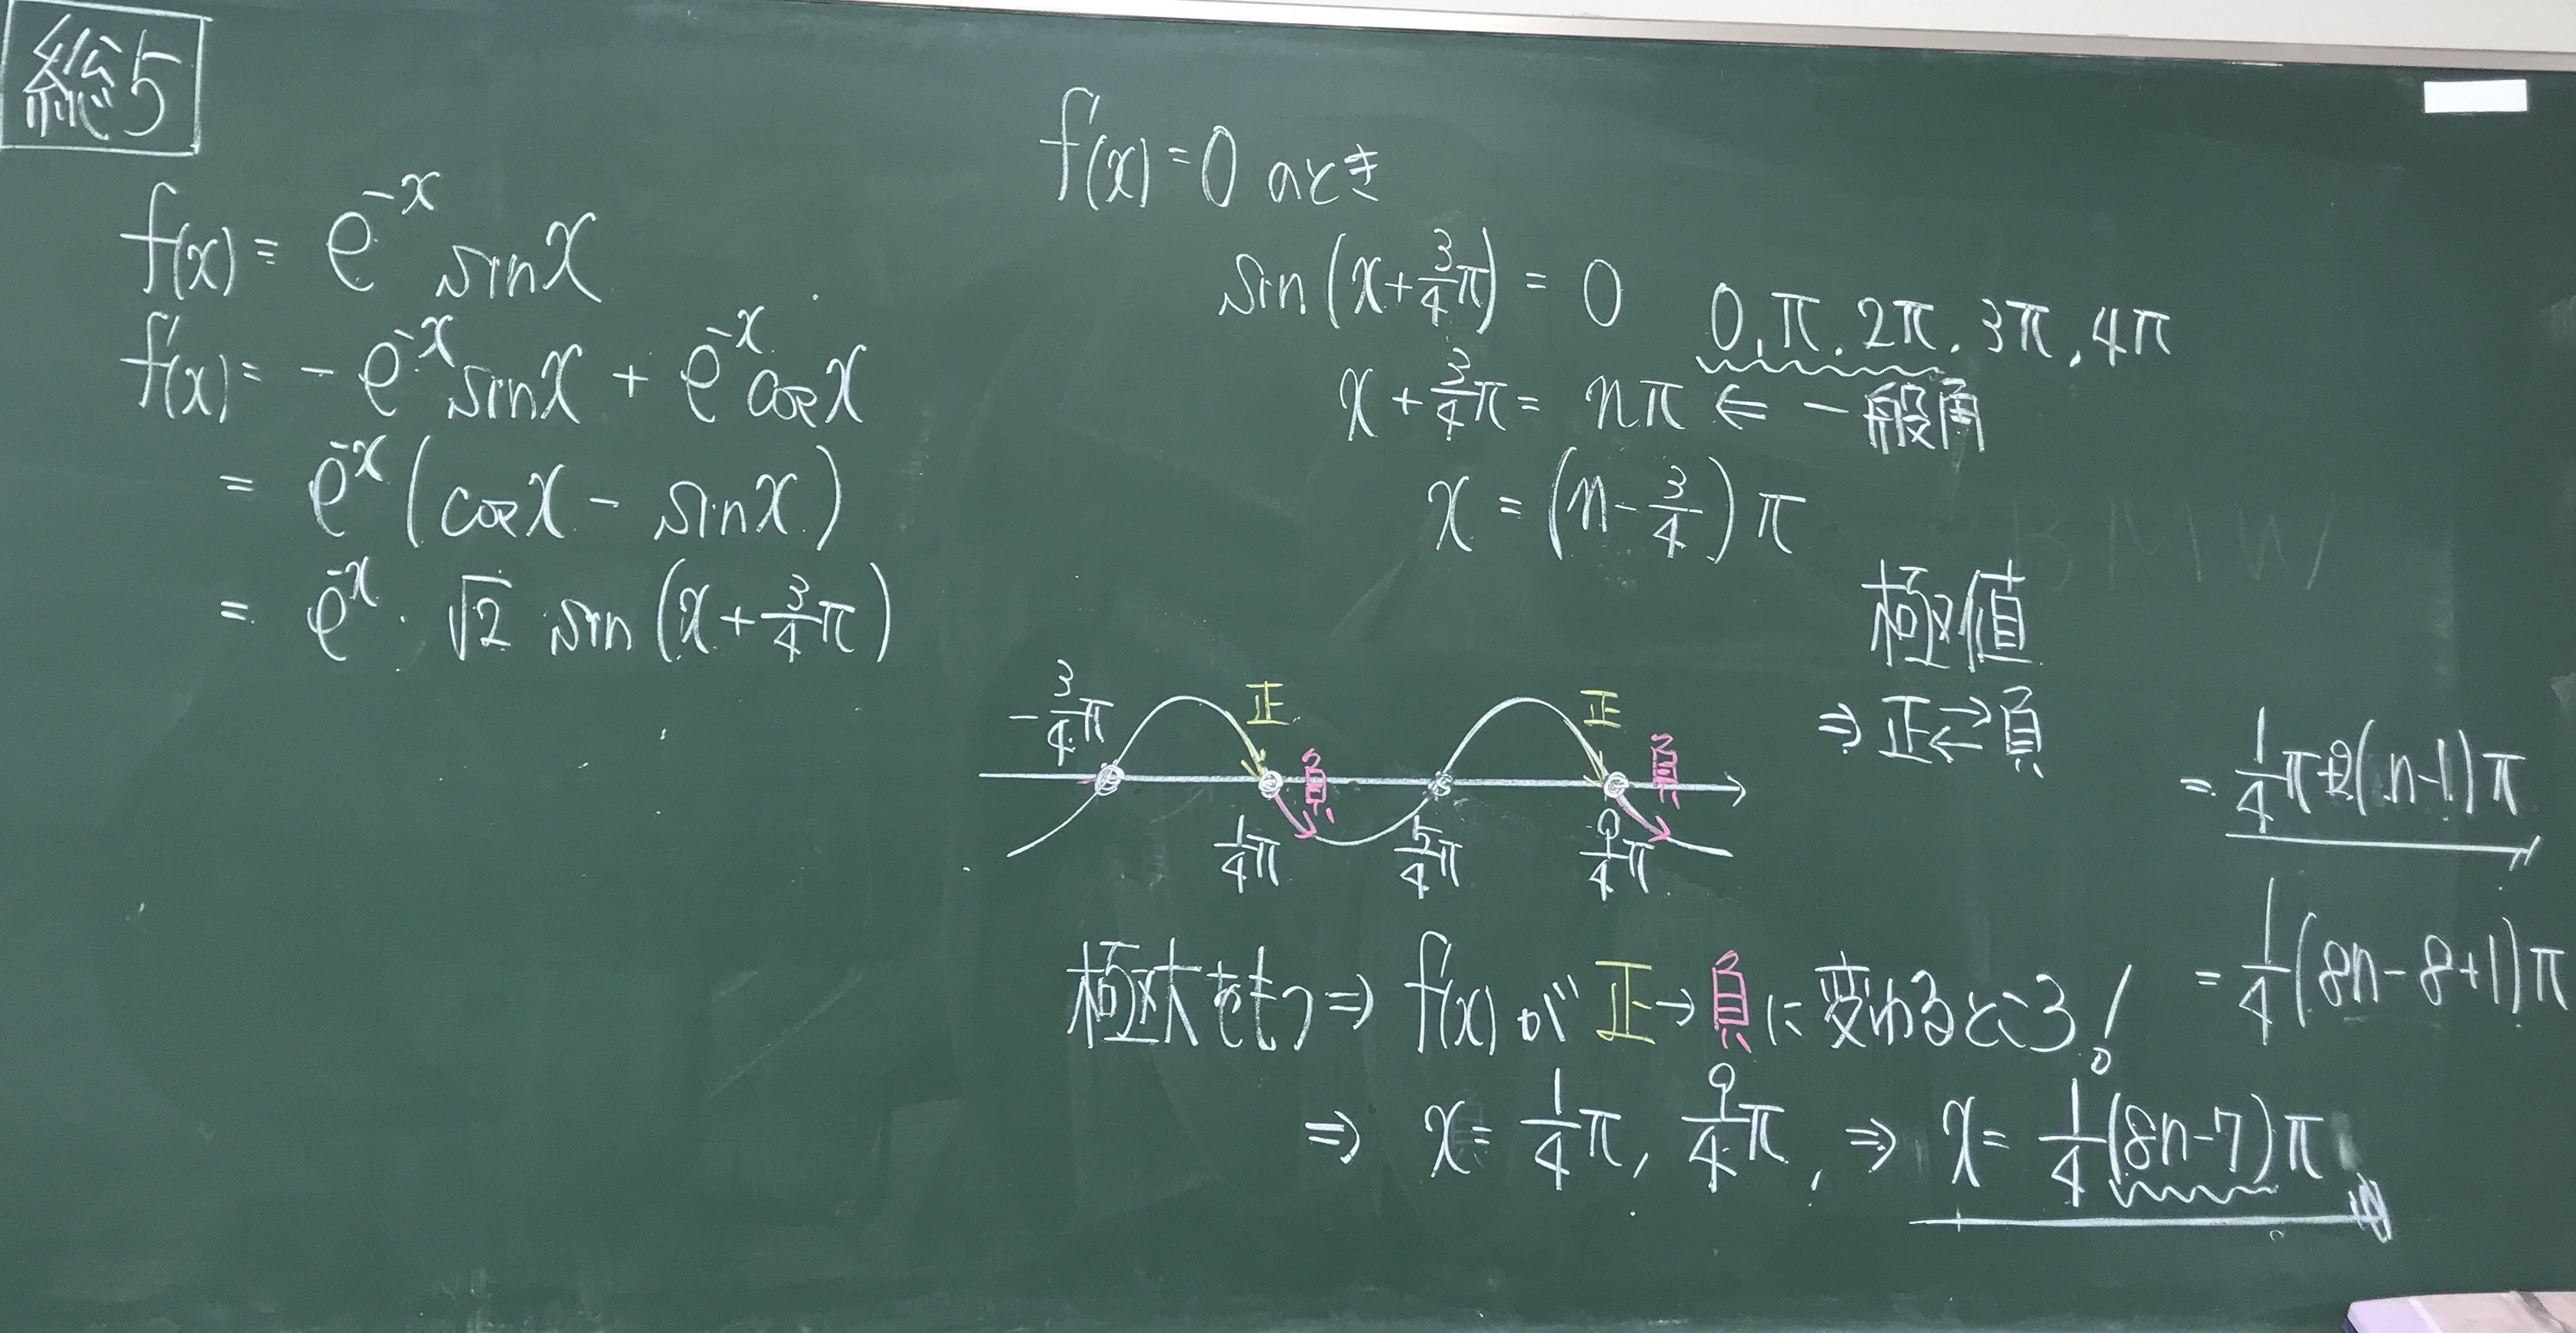 総5
f(x) = e^{-x} sinx
f'(x) = -e^{-x}sinx + e^{-x}cosx
= e^{-x}(cosx - sinx)
= e^{-x}・√2 sin(x + 3/4π)
f'(x) = 0 のとき
sin(x + 3/4π) = 0 0, π, 2π, 3π, 4π
x + 3/4π = nπ ⇐ 一般角
x = (n - 3/4)π
BMW
極値
⇒ 正⇄負
-3/4π 正 負 正 負
1/4π 5/4π 9/4π
極大をもつ ⇒ f'(x)が 正→負に変わるところ!
⇒ x = 1/4π, 9/4π, ⇒ x = 1/4(8n-7)π
= 1/4π+2(n-1)π
= 1/4(8n-8+1)π